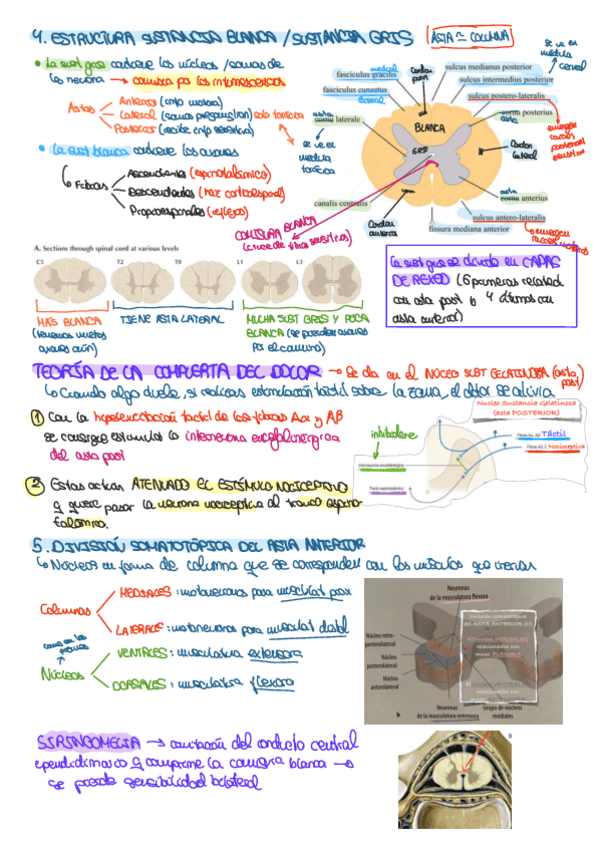 4. ESTRUCTURA SUSTANCIA BLANCA / SUSTANCIA GRIS
ASTA ≈ COLUMNA
se ve en médula cervical
• La sust gris contiene los núcleos / somas de
las neurona → comunica por las interneuronas
Astas
Anteriores (info motora)
Lateral (soma preganglion) solo torácica
Posterior (recibe info sensitiva)
se ve en médula torácica
• La sust blanca contiene los axones
↳ Fibras
Ascendentes (espinotalámico)
Descendentes (haz corticoespinal)
Propioespinales (reflejos)
medial
fasciculus gracilis
fasciculus cuneatus
lateral
asta
cornu laterale
canalis centralis
Cordón post
sulcus medianus posterior
sulcus intermedius posterior
sulcus postero-lateralis
cornu posterius
asta
emergen raíces posteriores sensitiva
BLANCA
GRIS
Cordón lateral
asta
cornu anterius
sulcus antero-lateralis
emergen raíces motoras
fissura mediana anterior
Cordón anterior
COMISURA BLANCA
(cruce de fibra sensitivas)
A. Sections through spinal cord at various levels
C5 T2 T8 L1 L3
MÁS BLANCA
(tenemos muchos axones aún)
TIENE ASTA LATERAL
MUCHA SUST GRIS Y POCA
BLANCA (se pierden axones
por el camino)
La sust gris se divide en CAPAS
DE REXED (6 primeras relacionad
con asta post y 4 últimas con
asta anterior)
TEORÍA DE LA COMPUERTA DEL DOLOR → se da en el NÚCEO SUST GELATINOSA (asta post)
↳ Cuando algo duele, si realizas estimulación táctil sobre la zona, el dolor se alivia
① Con la hiperexcitación táctil de las fibras Aα y Aβ
se consigue estimular la interneurona encefalinérgica
del asta post
② Estas actúan ATENUADO EL ESTÍMULO NOCICEPTIVO
q quiere pasar la neurona nociceptiva al tracto espino-
talámico.
Nucleo Sustancia Gelatinosa
(asta POSTERIOR)
Táctil
Nociceptiva
inhibidora
5. DIVISIÓN SOMATOTÓPICA DEL ASTA ANTERIOR
↳ Núcleos en forma de columna que se corresponden con los músculos que inervan
Columnas
MEDIALES: motoneuronas para musculat prox
LATERALES: motoneuronas para musculat distal
Núcleos
VENTRALES: musculatura extensora
DORSALES: musculatura flexora
Neuronas
de la musculatura flexora
Núcleo retro-
posterolateral
Núcleo
posterolateral
Núcleo
anterolateral
Neuronas
de la musculatura extensora
Grupo de núcleos
mediales
SIRINGOMELIA → cavitación del conducto central
ependimario q comprime la comisura blanca →
se pierde sensibilidad bilateral